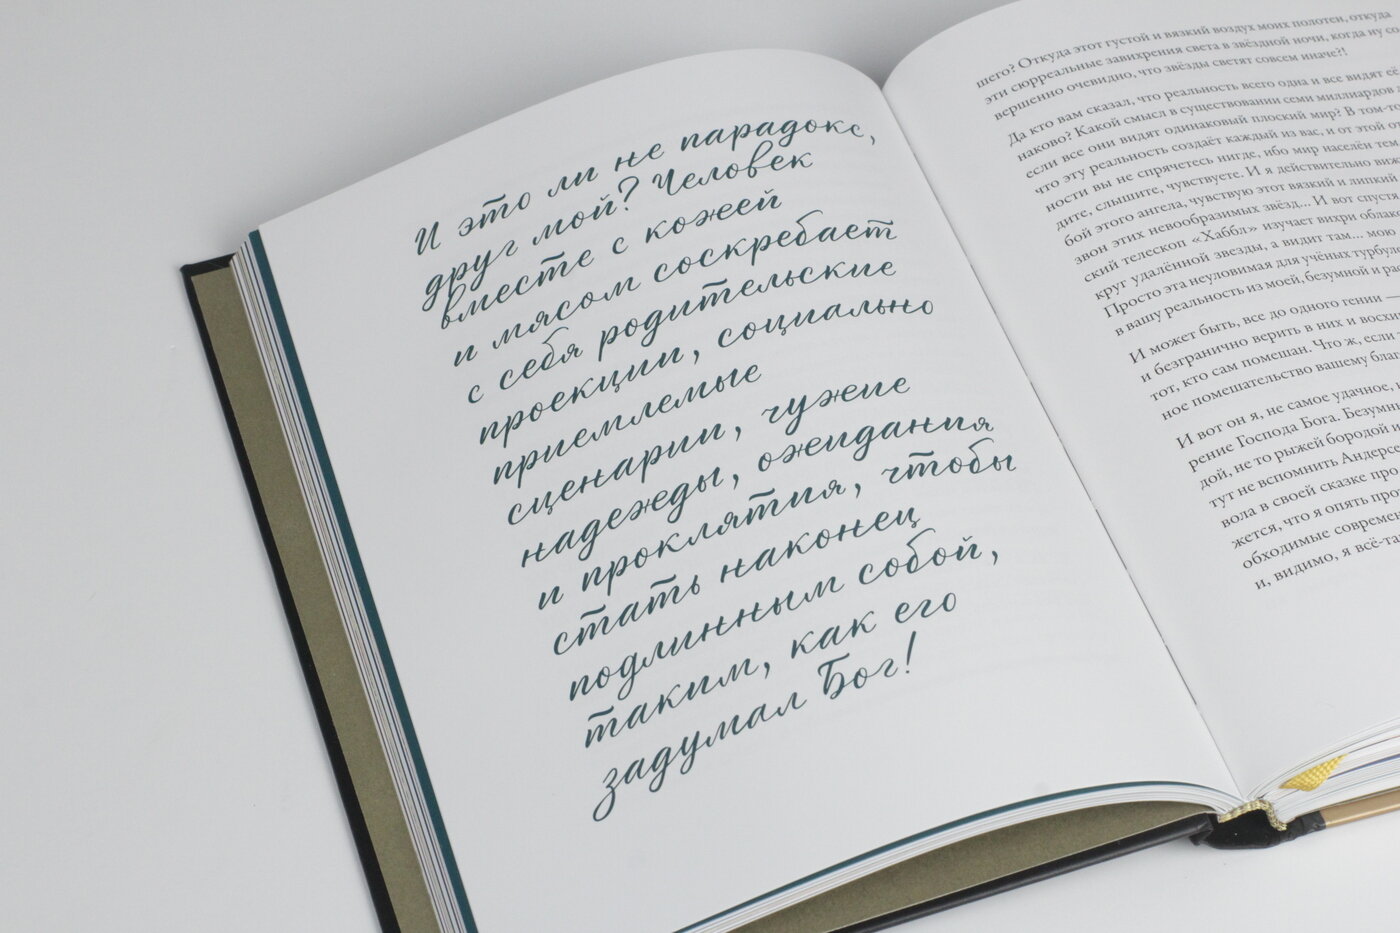 И это ли не парадокс,
друг мой? Человек
вместе с кожей
и мясом соскребает
с себя родительские
проекции, социально
приемлемые
сценарии, чужие
надежды, ожидания
и проклятия, чтобы
стать наконец
подлинным собой,
таким, как его
задумал Бог!
шего? Откуда этот густой и вязкий воздух моих полотен, откуда
эти сюрреальные завихрения света в звёздной ночи, когда ну со
вершенно очевидно, что звёзды светят совсем иначе?!
Да кто вам сказал, что реальность всего одна и все видят её
наково? Какой смысл в существовании семи миллиардов
если все они видят одинаковый плоский мир? В том-то
что эту реальность создаёт каждый из вас, и от этой от
ности вы не спрячетесь нигде, ибо мир населён тем
дите, слышите, чувствуете. И я действительно виж
бой этого ангела, чувствую этот вязкий и липкий
звон этих невообразимых звёзд... И вот спустя
ский телескоп «Хаббл» изучает вихри обла
круг удалённой звезды, а видит там... мою
Просто эта неуловимая для учёных турбул
в вашу реальность из моей, безумной и ра
И может быть, все до одного гении —
и безгранично верить в них и восхи
тот, кто сам помешан. Что ж, если
ное помешательство вашему благ
И вот он я, не самое удачное,
рение Господа Бога. Безумн
дой, не то рыжей бородой и
тут не вспомнить Андерсе
вола в своей сказке про
жется, что я опять про
обходимые современ
и, видимо, я всё-та